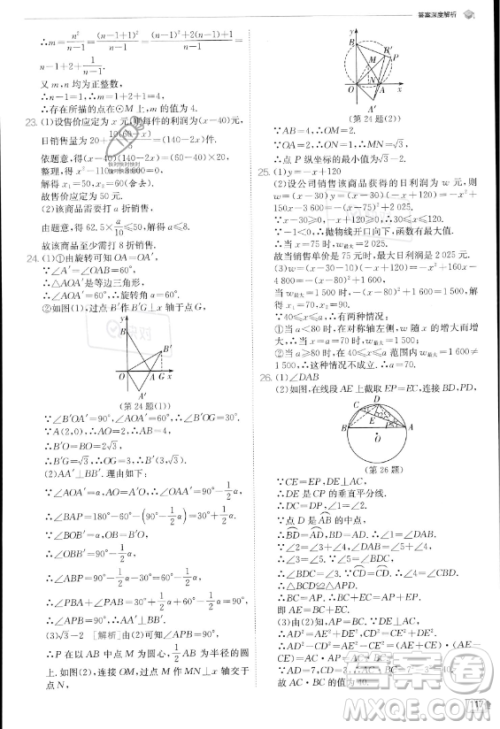 答案深度解析
∴m=n²/(n-1)=(n-1+1)²/(n-1)=((n-1)²+2(n-1)+1)/(n-1)=
n-1+2+1/(n-1).
又 m,n均为正整数,
∴n-1=1,∴m=1+2+1=4.
∴在所描的点在⊙M上,m的值为4.
23.(1)设售价应定为x元,则每件的利润为(x-40)元,
日销售量为20+
=(140-2x)件.
依题意,得(x-40)(140-2x)=
解得x₁=50,x₂=60(舍去).
故售价应定为50元.
(2)设该商品需要打a折销售,
由题意,得62.5×a/10≤50,解得a≤8.
故该商品至少需打8折销售.
24.(1)①由旋转可知OA=OA′,
∵∠A′=∠OAB=60°,
∴△AOA′是等边三角形,
∴∠AOA′=60°,∴旋转角α=60°.
②如图(1),过点B′作B′G⊥x轴于点G,
B
B′
O
A
G
x
A′
(第24题(1))
∵∠B′OA′=90°,∠AOA′=60°,
∴∠B′OG=30°.
∵A(2,0),∴OA=2,∴OB=2√3,
∴B′O=BO=2√3,
∴B′G=√3,∴OG=3,∴B′(3,√3).
(2)AA′⊥BB′.理由如下:
∵∠AOA′=α,AO=A′O,∴∠OAA′=90°-1/2α,
∴∠BAP=180°-60°-(90°-1/2α)=30°+1/2α,
∵∠BOB′=α,BO=B′O,∴∠OBB′=90°-1/2α.
∵∠ABO=90°-60°=30°,
∴∠ABP=90°-1/2α-30°=60°-1/2α,
∴∠PBA+∠PAB=30°+1/2α+60°-1/2α=90°,
∴∠APB=90°,∴AA′⊥BB′.
(3)√3-2 [解析]由(2)可知∠APB=90°,
∴P在以AB为直径,点M为圆心的圆上,
如图(2),过点M作MN⊥x轴交于
点N,
B
P
B′
M
O
N
A
x
A′
(第24题(2))
∵AB=4,∴OB=2√3.
∵OA=2,∴ON=1,∴MN=√3.
∴点P纵坐标的最小值为√3-2.
25.(1)y=-x+120
(2)设公司销售该商品获得的日利润为w元,
w=(x-30)y=(x-30)(-x+120)=-x²+
150x-3 600=-(x-75)²+2 025.
∵x-30≥0,-x+120≥0,∴30≤x≤120.
∵-1<0,∴抛物线开口向下,函数有最大值,
∴当x=75时,w最大=2 025.
故当销售单价是75元时,最大日利润是2 025元.
(3)w=(x-30-10)(-x+120)=-x²+160x-
4 800=-(x-80)²+1 600.
当w最大=1 500时,-(x-80)²+1 600=1 500,
解得x₁=70,x₂=90.
∵40≤x≤a,∴有两种情况:
①当a<80时,在对称轴左侧,w随x的增大而增大,
∴当x=a=70时,w最大=1 500.
②当a≥80时,在40≤x≤a范围内w最大=1 600≠
1 500,∴这种情况不成立.∴a=70.
26.(1)∠DAB
(2)如图,在线段AE上截取EP=EC,连接BD,PD,
(第26题)
∵CE=EP,DE⊥AC,
∴DE是CP的垂直平分线.
∴CD=DP,∠C=∠5.
∵点D是AB的中点,
∴BD=AD,BD=AD.∴∠1=∠DAB.
∵∠2=∠3,∴∠DAB=∠5+∠4,
∴∠BDC=∠3.∴∠BDC=∠2.
∴△BDC≌△ADP.
∴BC=AP.∴BC+CE=AP+PE.
即AE=BC+CE.
(3)由(2)知,AP=BC,∵DE⊥AC,
∴AD²-AE²=DE²=CD²-CE².
∴AD²-CD²=AE²-CE²
∴AD²-CD²=
故AD²-CD²的值为40.
答案圈
MXQE.COM